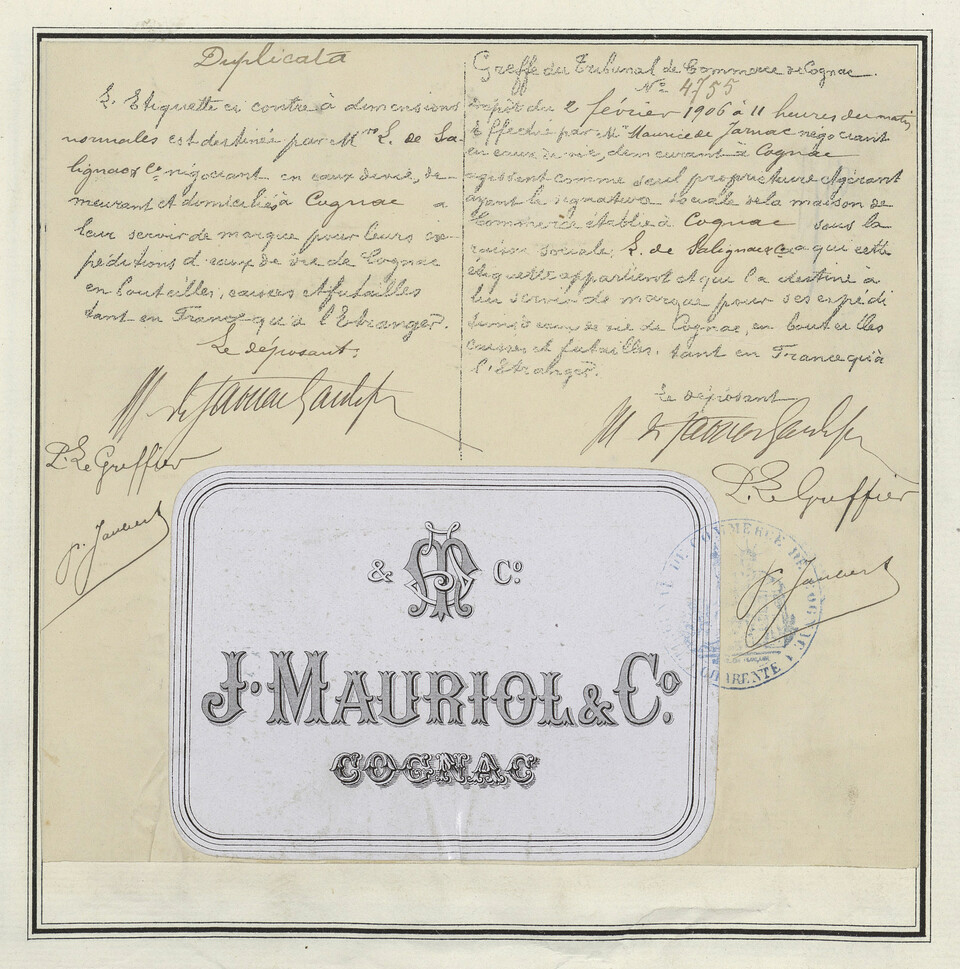 Duplicata
L'Etiquette ci contre à dimensions
normales est destinée par Mrs L. de Sa-
lignac & Co négociant en eaux de vie, de-
meurant et domiciliés à Cognac a
leur servir de marque pour leurs ex-
péditions d'eaux de vie de Cognac
en bouteilles, caisses et futailles
tant en France qu'à l'Etranger.
Le déposant.
P. Le Greffier
P. Jaubert
Greffe du Tribunal de Commerce de Cognac.
No 4755
Dépôt du 2 février 1906 à 11 heures du matin
Effectué par Mr Maurice de Jarnac négociant
en eaux de vie, demeurant à Cognac
agissant comme seul propriétaire & gérant
ayant la signature sociale de la maison de
Commerce établie à Cognac sous la
raison sociale, L. de Salignac & Co à qui cette
étiquette appartient et qui l'a destiné à
lui servir de marque pour ses expédi
tions d'eaux de vie de Cognac, en bouteilles
caisses et futailles, tant en France qu'à
l'Etranger.
Le déposant
P. Le Greffier
P. Jaubert
COMMERCE DE COGNAC
CHARENTE
& Co
J. MAURIOL & Co.
COGNAC